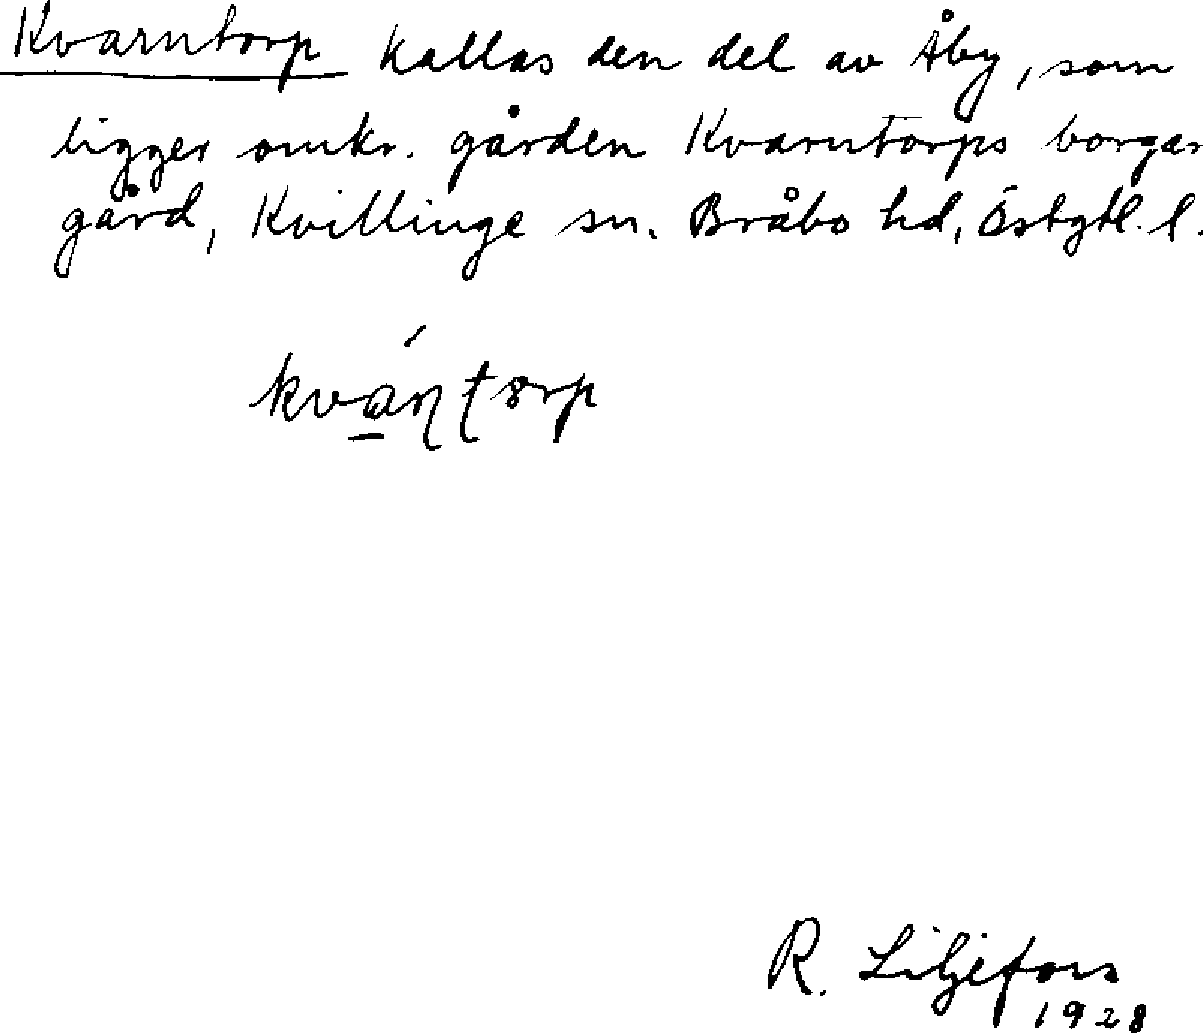 Kvarntorp kallas den del av Åby, som
ligger omkr. gården Kvarntorps borgar
gård, Kvillinge sn. Bråbo hd, Östgtl. l.
R. Liljefors
1928